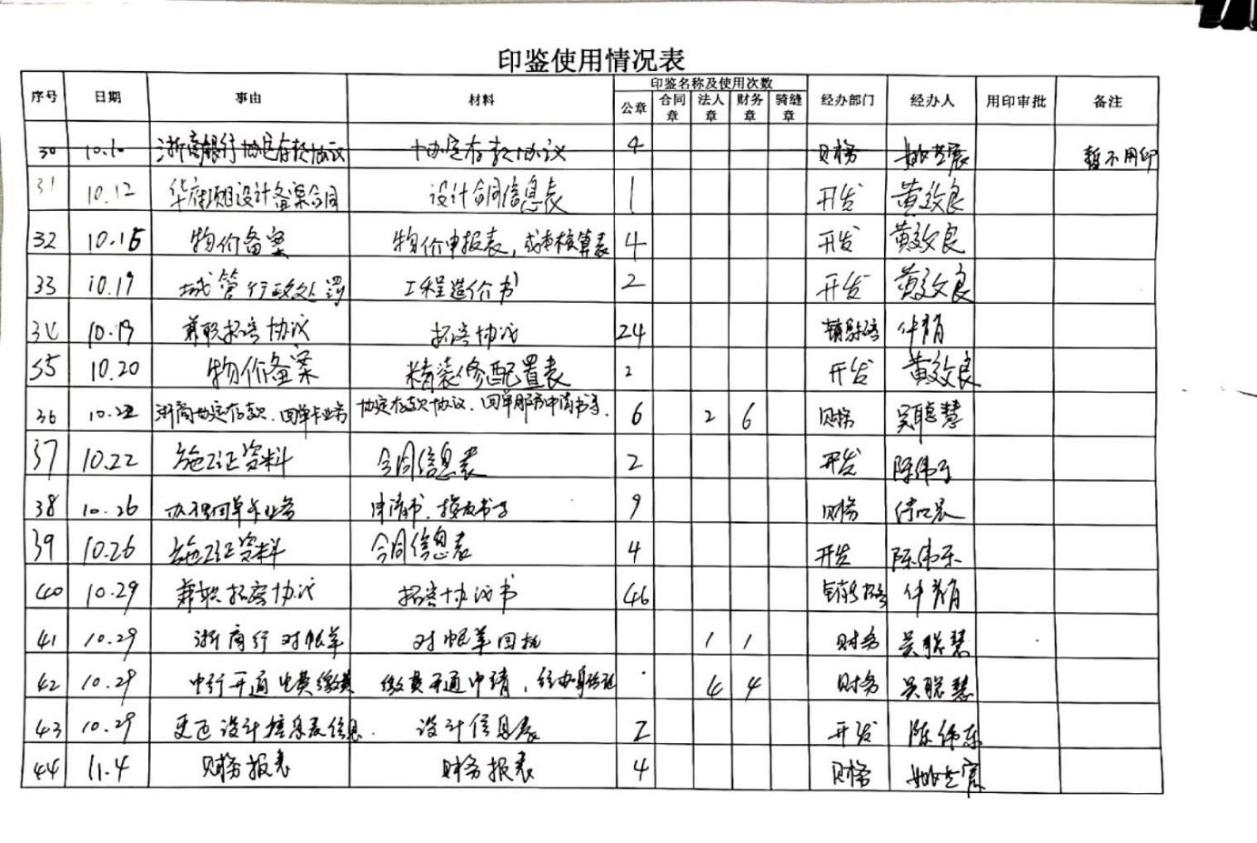 印鉴使用情况表
序号 日期 事由 材料 印鉴名称及使用次数 经办部门 经办人 用印审批 备注
公章 合同章 法人章 财务章 骑缝章
30 10.10 浙商银行协定存款协议 协定存款协议 4 财务 暂不用印
31 10.12 华府项目设计备案合同 设计合同信息表 1 开发 黄效良
32 10.15 物价备案 物价申报表，成本核算表 4 开发 黄效良
33 10.19 城管行政处罚 工程造价书 2 开发 黄效良
34 10.19 兼职招商协议 招商协议 24 仲鹃
35 10.20 物价备案 精装修配置表 2 开发 黄效良
36 10.22 浙商协定存款、回单卡业务 协定存款协议、回单服务申请书等. 6 2 6 财务 吴聪慧
37 10.22 施工证资料 合同信息表 2 开发 陈伟乐
38 10.26 办理回单卡业务 申请书、授权书等 9 财务
39 10.26 施工证资料 合同信息表 4 开发 陈伟乐
40 10.29 兼职招商协议 招商协议书 46 仲鹃
41 10.29 浙商行对帐单 对帐单回执 1 1 财务 吴聪慧
42 10.29 中行开通电费缴费 缴费开通申请，经办身份证 4 4 财务 吴聪慧
43 10.29 更正设计信息表信息. 设计信息表 2 开发 陈伟乐
44 11.4 财务报表 财务报表 4 财务